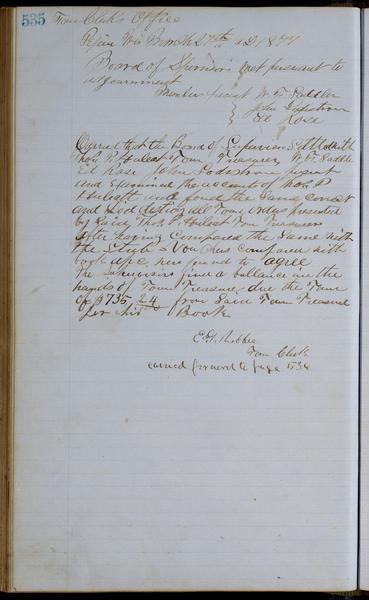 535 Town Clerks Office
Rosine Wis March 27th AD 1877
Board of Supervisors met pursuant to
adjournment
Members present W. F. Sadler
John Sodestrom
Ed Rose
Carried that the Board of Supervisors Settle with
Thos. P Hulest Town Treasurer W. F. Sadler
Ed Rose John Sodestrom present
and Examined the account of Thos. P
Hulest and found the same correct
and all Town orders presented
by Said Thos. P. Hulest Town Treasurer
after having Compared the Same with
the Stub & Vouchers Compared with
book were found to agree
The Supervisors find a ballance in the
hands of Town Treasurer, due the Town
of $735,24 from Said Town Treasurer
per this Book
Town Clerk
carried forward to page 538